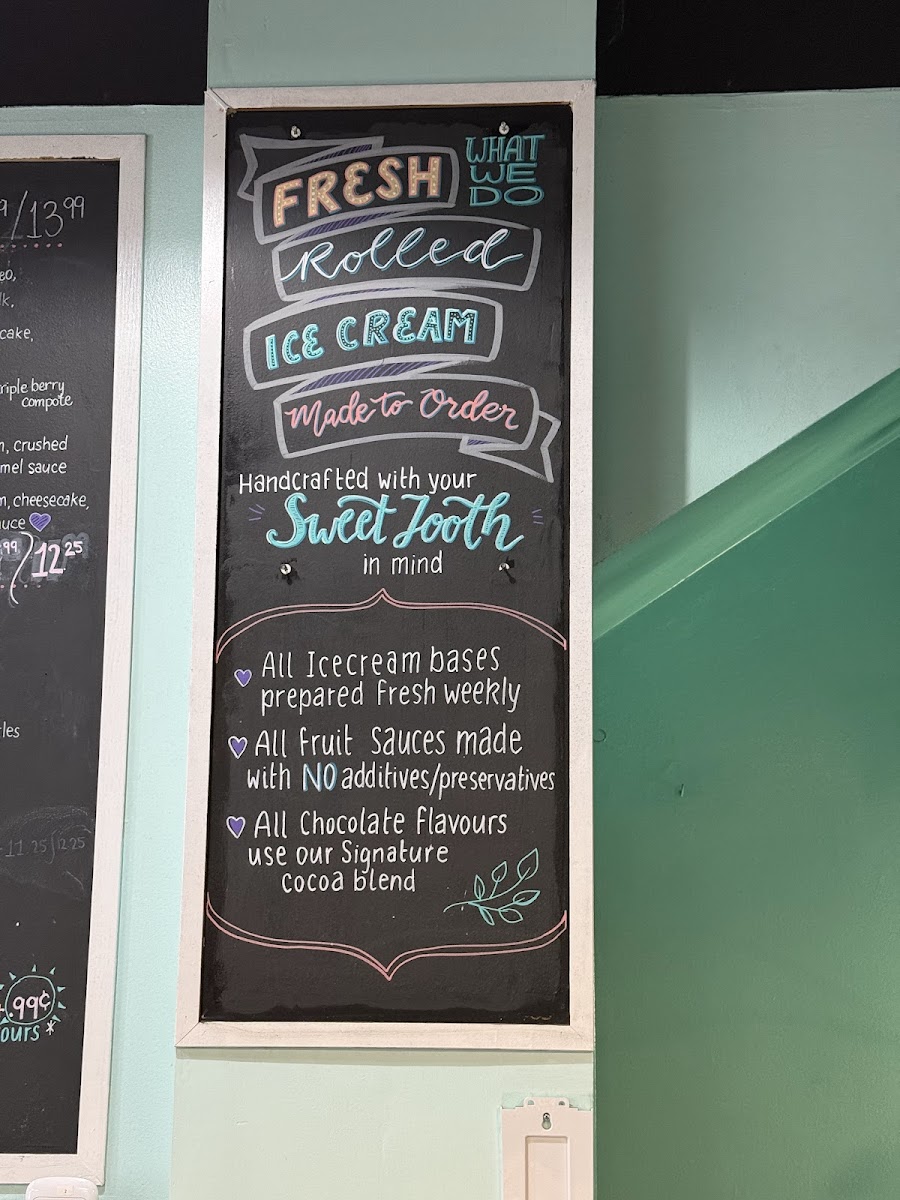 /13 99
cake,
triple berry
compote
crushed
sauce
cheesecake,
12 25
11 25/12 25
.99¢
WHAT
WE
DO
FRESH
Rolled
ICE CREAM
Made to Order
Handcrafted with your
Sweet Tooth
in mind
All Icecream bases
prepared fresh weekly
All fruit Sauces made
with NO additives/preservatives
All Chocolate flavours
use our Signature
cocoa blend